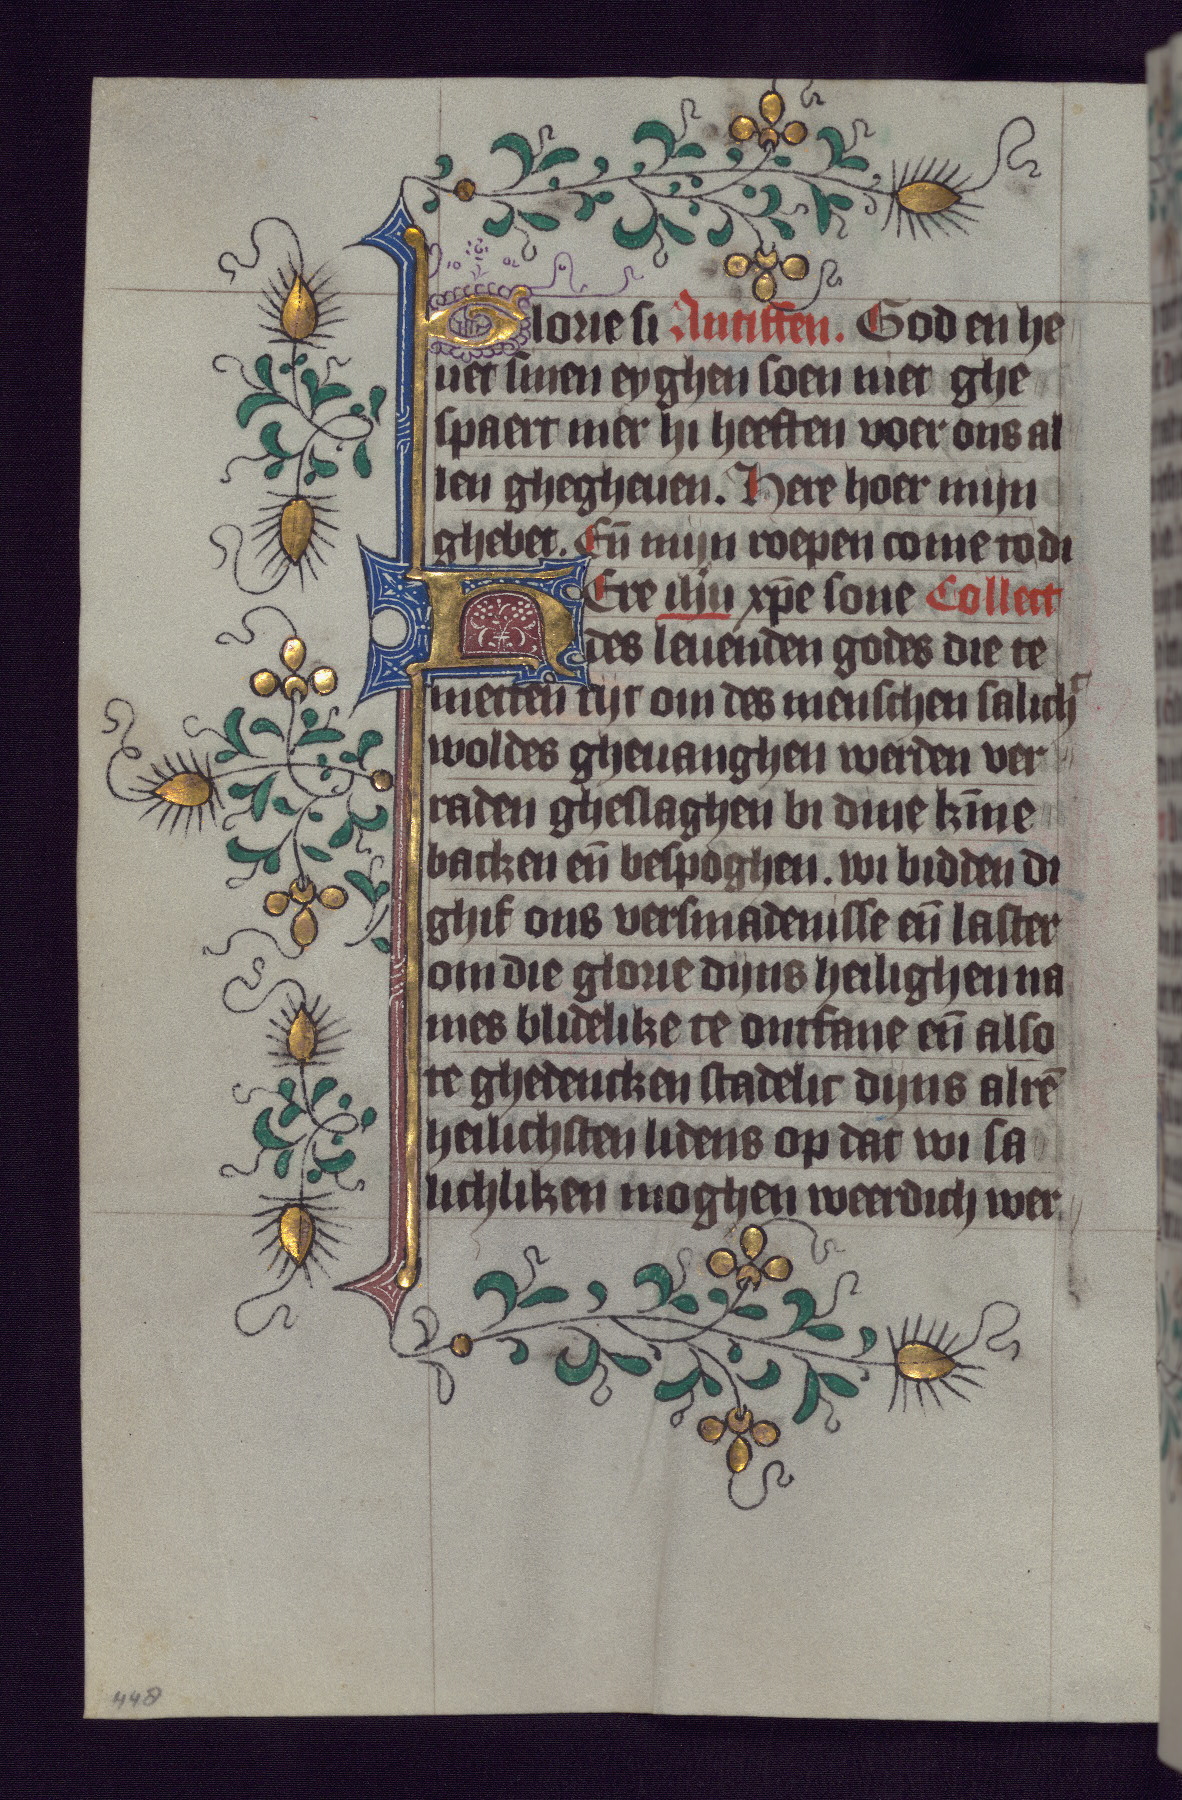 Glorie si Antiffen. God en he
uet sinen eyghen soen niet ghe
spaert mer hi heeften voer ons al
len ghegheuen. Here hoer mijn
ghebet. Eñ mijn roepen come to di
HEre ihu xp̄e sone Collect
des leuenden godes die te
metten tijt om des menschen salicht
woldes gheuanghen werden ver
raden gheslaghen bi dine kīne
backen eñ bespoghen. wi bidden di
ghif ons versmadenisse eñ laster
om die glorie dijns heilighen na
mes blidelike te ontfane eñ also
te ghedencken stadelic dijns alrē
heilichsten lidens op dat wi sa
lichliken moghen weerdich wer
448